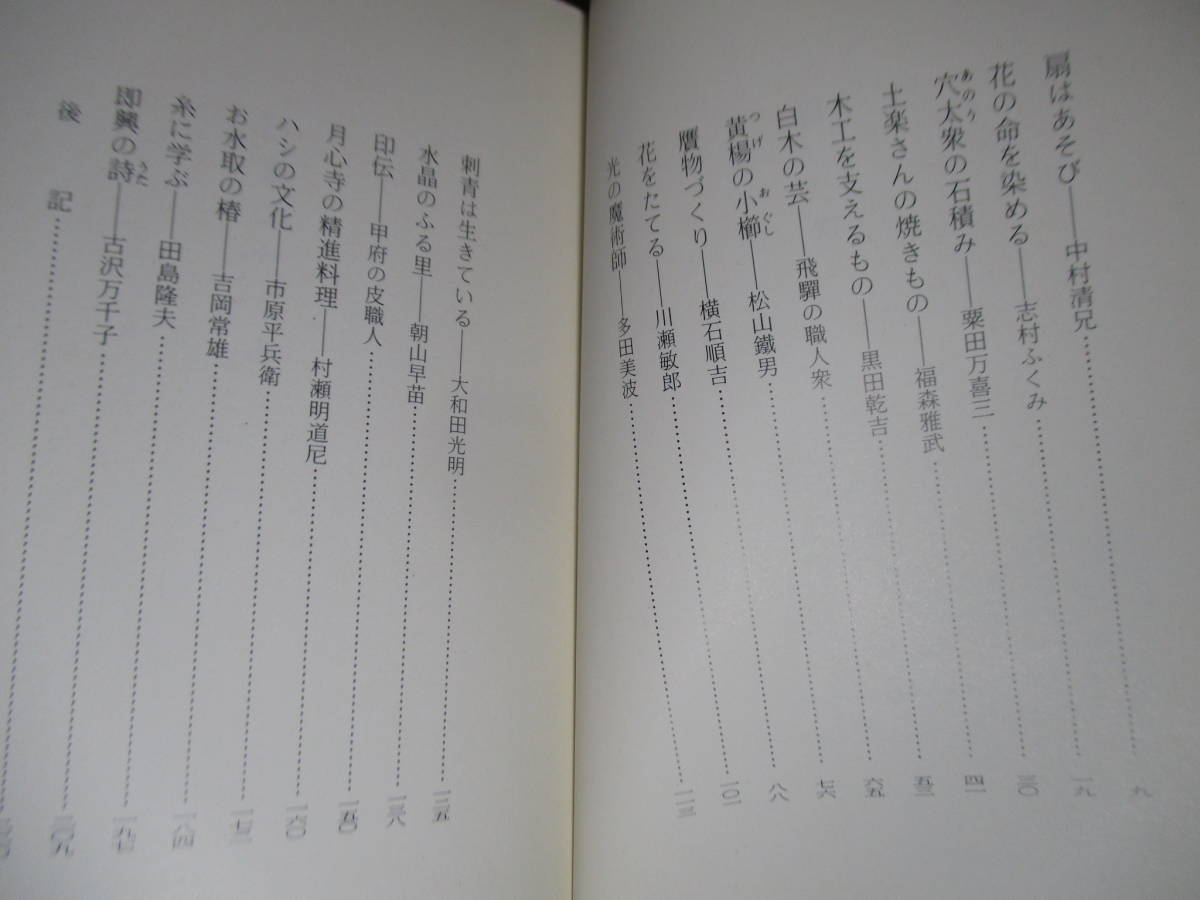 扇はあそび――中村清兄……九
花の命を染める――志村ふくみ……一九
あのう
穴太衆の石積み――粟田万喜三……三〇
土楽さんの焼きもの――福森雅武……四一
木工を支えるもの――黒田乾吉……五三
白木の芸――飛驒の職人衆……六五
つげ おぐし
黄楊の小櫛――松山鐵男……七六
贋物づくり――横石順吉……八八
花をたてる――川瀬敏郎……一〇一
光の魔術師――多田美波……一一三
刺青は生きている――大和田光明……一二五
水晶のふる里――朝山早苗……一三八
印伝――甲府の皮職人……一五〇
月心寺の精進料理――村瀬明道尼……一六〇
ハシの文化――市原平兵衛……
お水取の椿――吉岡常雄……一八四
糸に学ぶ――田島隆夫……一九七
うた
即興の詩――古沢万千子……二〇九
後記……